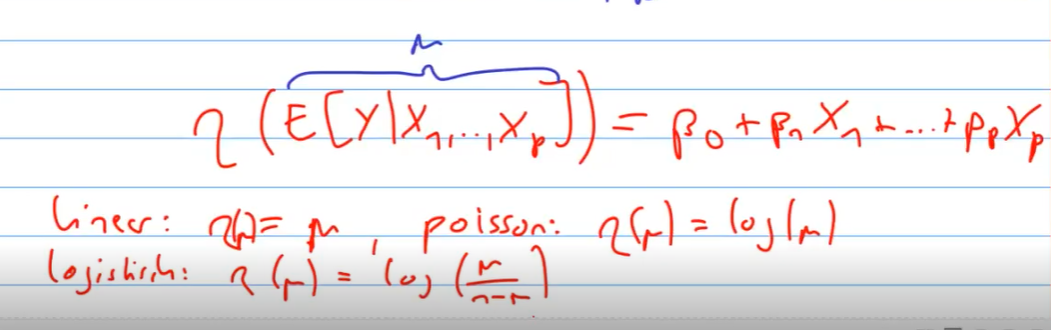 μ
η(E[Y|X₁,...,Xₚ]) = β₀ + β₁X₁ + ... + βₚXₚ
linear: η(μ) = μ, poisson: η(μ) = log(μ)
logistisch: η(μ) = log(μ/(1-μ))